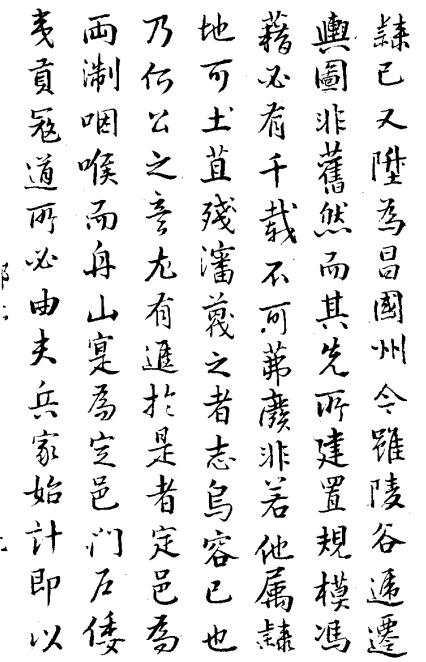 隸已又陞為昌國州今雖陵谷遞遷
輿圖非舊然而其先所建置規模馮
藉必有千载不可茀廢非若他属隸
地可土苴殘瀋蔑之者志烏容已也
乃何公之意尤有進於是者定邑為
兩浙咽喉而舟山寔為定邑門戶倭
夷貢寇道所必由夫兵家始計即以